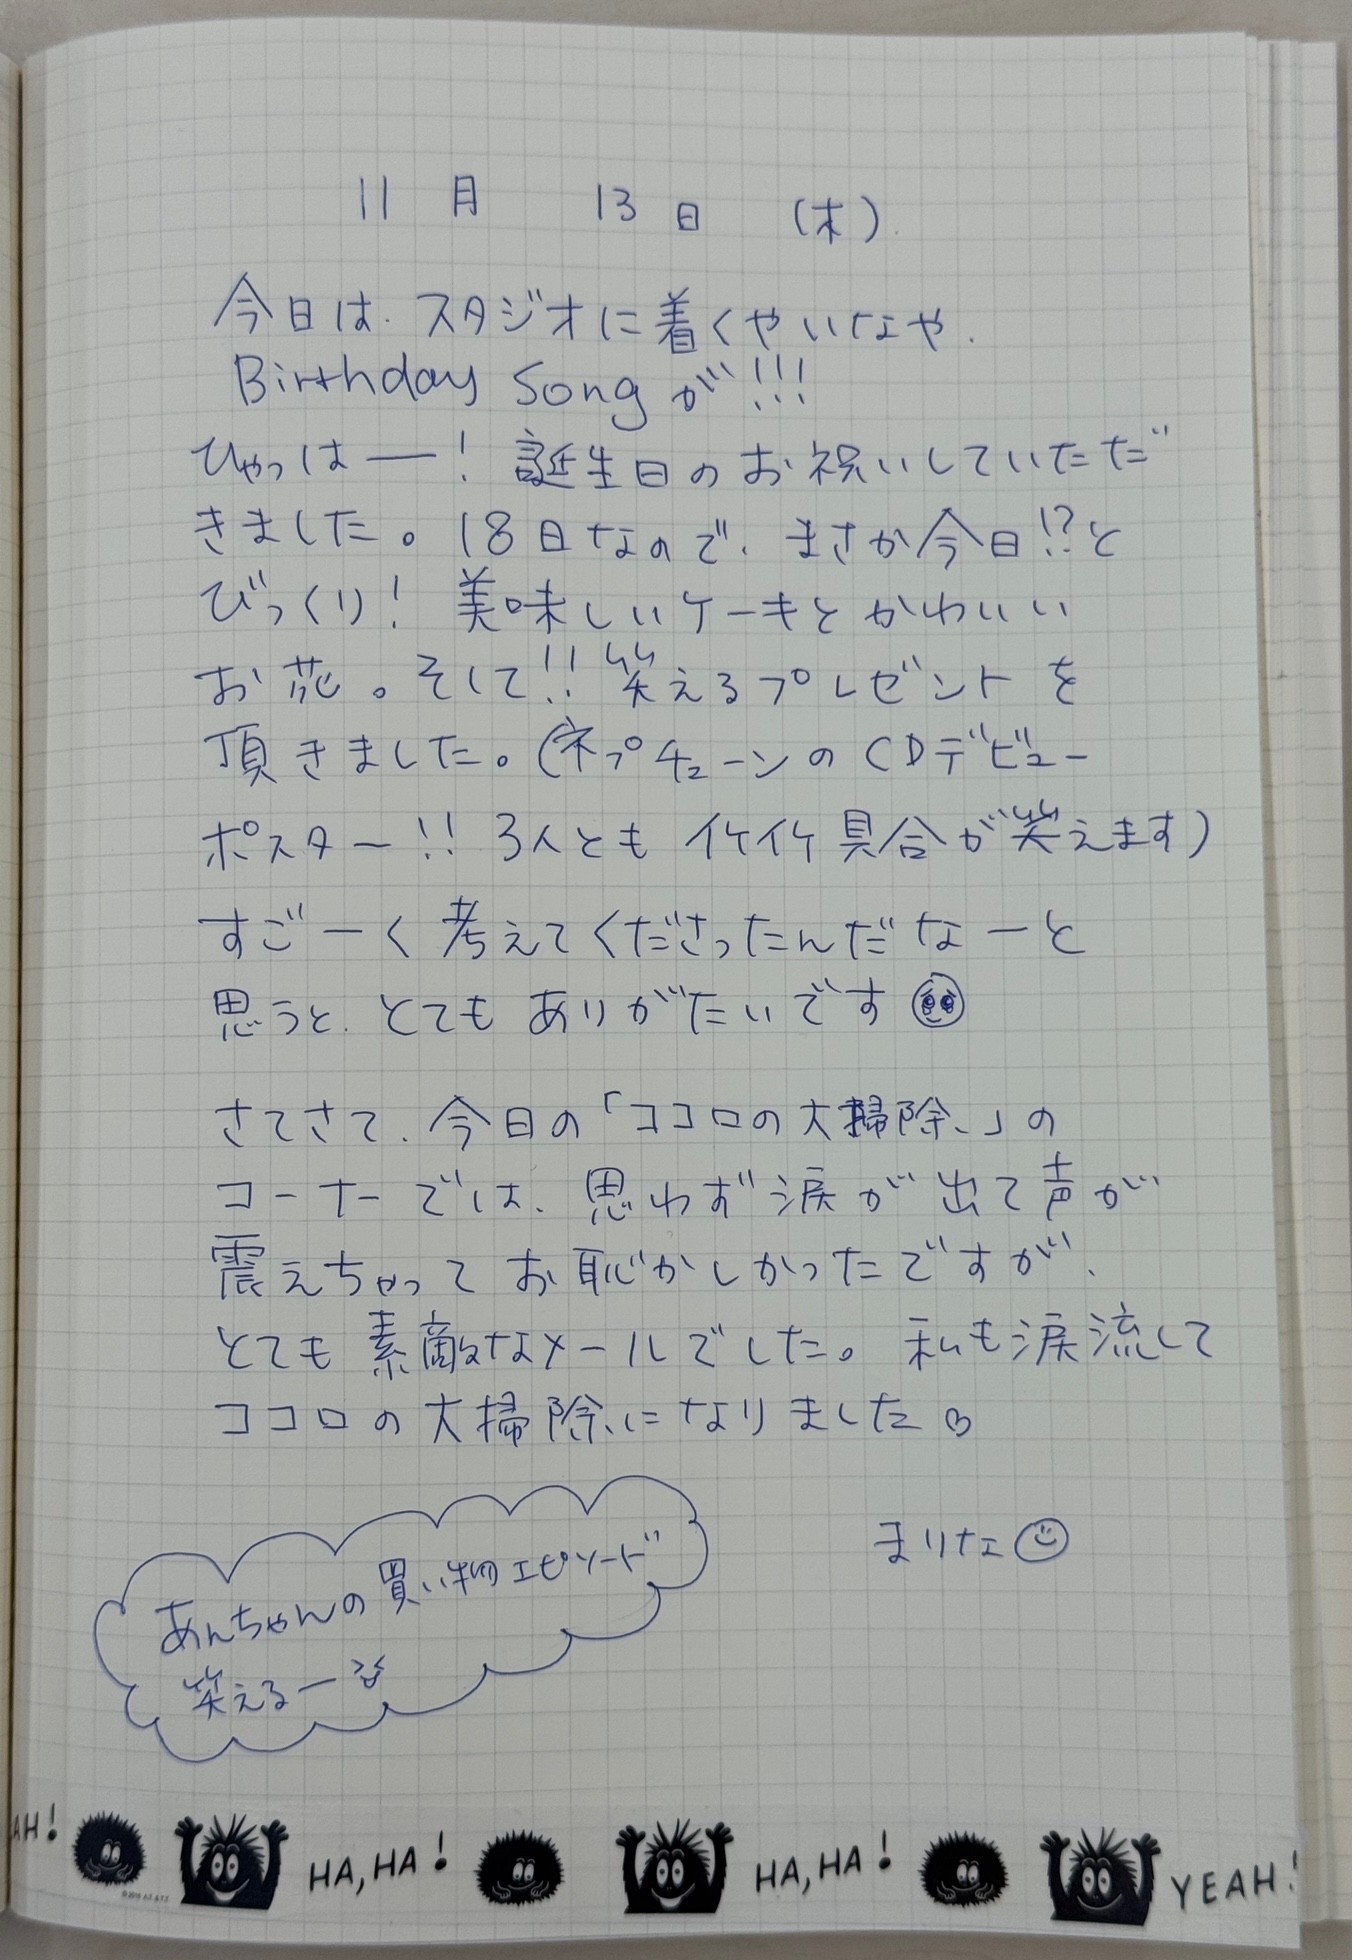 11月 13日 (木)
今日は、スタジオに着くやいなや、
Birthday Songが!!!
ひゃっはー! 誕生日のお祝いしていただ
きました。18日なので、まさか今日!?と
びっくり! 美味しいケーキとかわいい
お花。そして!! 笑えるプレゼントを
頂きました。(ネプチューンのCDデビュー
ポスター!! 3人とも イケイケ具合が笑えます)
すごーく考えてくださったんだなーと
思うと、とてもありがたいです
さてさて、今日の「ココロの大掃除」の
コーナーでは、思わず涙が出て声が
震えちゃってお恥かしかったですが、
とても素敵なメールでした。私も涙流して
ココロの大掃除になりました♡
まりな
あんちゃんの買い物エピソード
笑えるー
AH!
HA, HA!
HA, HA!
YEAH!